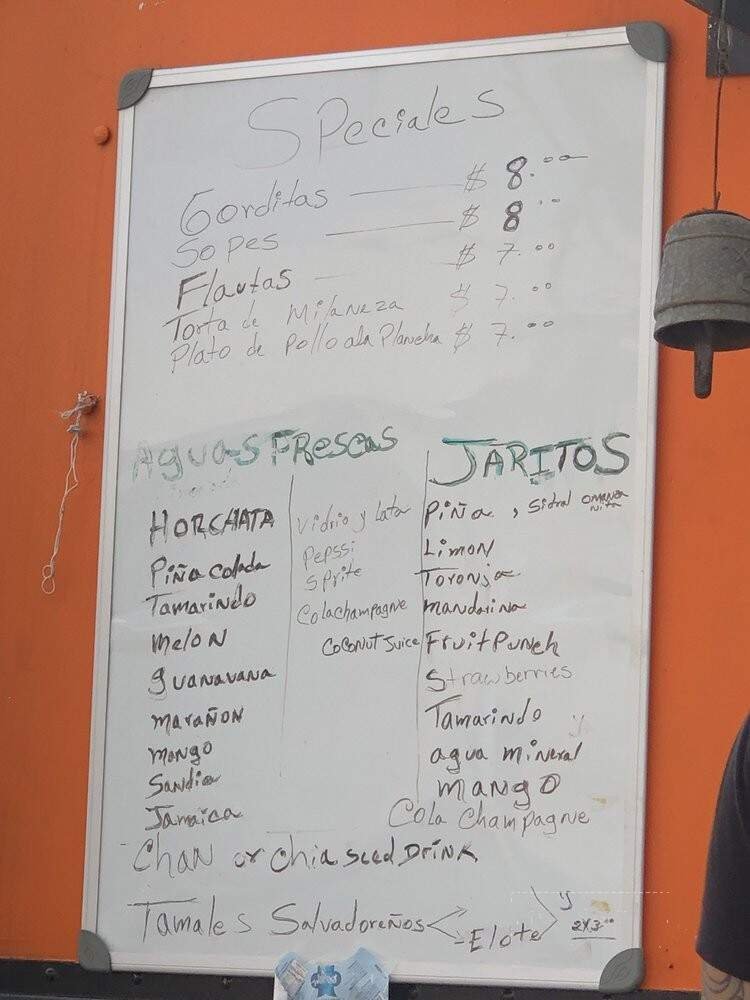 SPeciales
Gorditas $ 8.00
SoPes $ 8
Flautas $ 7.00
Torta de Milaneza $ 7.00
Plato de Pollo ala Plancha $ 7.00
Aguas FRescas
HORCHATA
Piña Colada
Tamarindo
MeloN
guanavana
maraÑoN
mango
Sandia
Jamaica
Vidrio y Lata
Pepssi
sprite
Cola champagne
CocoNut Juice
JARITOS
PiÑa , Sidral
LimoN
Toronja
mandarina
FruitPunch
Strawberries
Tamarindo
agua mineral
mango
Cola Champagne
Chan or chia seed DRiNK
Tamales Salvadoreños
-Elote
y
2x3.00